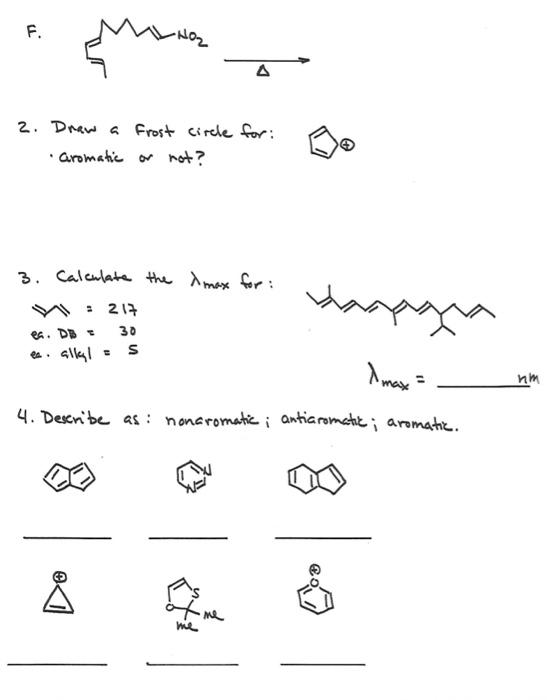 F.
NO2
Δ
2. Draw a Frost circle for:
· aromatic or not?
⊕
3. Calculate the λmax for:
= 217
ea. DB = 30
ea. alkyl = 5
λmax = ________ nm
4. Describe as: nonaromatic; antiaromatic; aromatic.
N
N
⊕
S
O
me
me
⊕
O